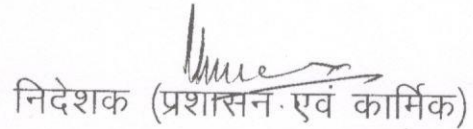 निदेशक (प्रशासन एवं कार्मिक)